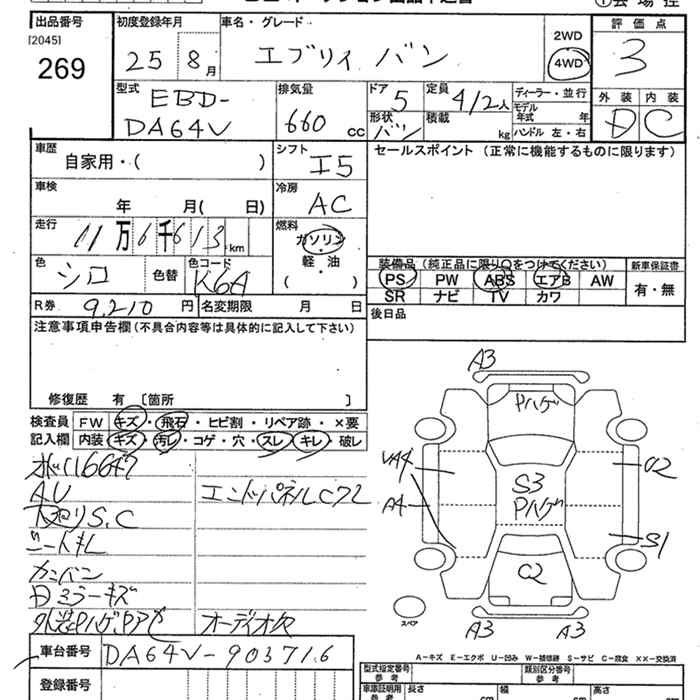 出品番号
[2045]
269
初度登録年月
25 8月
車名・グレード
エブリィ バン
2WD
4WD
評価点
3
外装 内装
D C
型式
EBD-
DA64V
排気量
660 cc
ドア
5
形状
バン
定員
4/2人
積載
kg
ディーラー・並行
モデル
年式 年
ハンドル 左・右
車歴
自家用・( )
シフト
I5
セールスポイント (正常に機能するものに限ります)
車検
年 月( 日)
冷房
AC
走行
11万6千613km
燃料
ガソリン
軽・油
( )
色
シロ
色替
色コード
K6A
装備品 (純正品に限り○をつけてください)
PS PW ABS エアB AW
SR ナビ TV カワ
新車保証書
有・無
R券 9,210 円
名変期限 月 日
後日品
注意事項申告欄 (不具合内容等は具体的に記入して下さい)
修復歴 有 〔箇所 〕
検査員
記入欄
FW キズ・飛石・ヒビ割・リペア跡・×要
内装 キズ・汚レ・コゲ・穴・スレ・キレ・破レ
AU
S.C
エンドパネルC72
カンバン
ミラーキズ
オーディオ欠
車台番号 DA64V-903716
登録番号
A3
Pハゲ
VA4
A4
S3
Pハゲ
C2
S1
スペア
A3
A3
A－キズ E－エクボ U－凹み W－補修跡 S－サビ C－腐食 ××－交換済
型式指定番号
参考
類別区分番号
参考
車庫証明用
参考
長さ
cm
幅
cm
高さ
cm